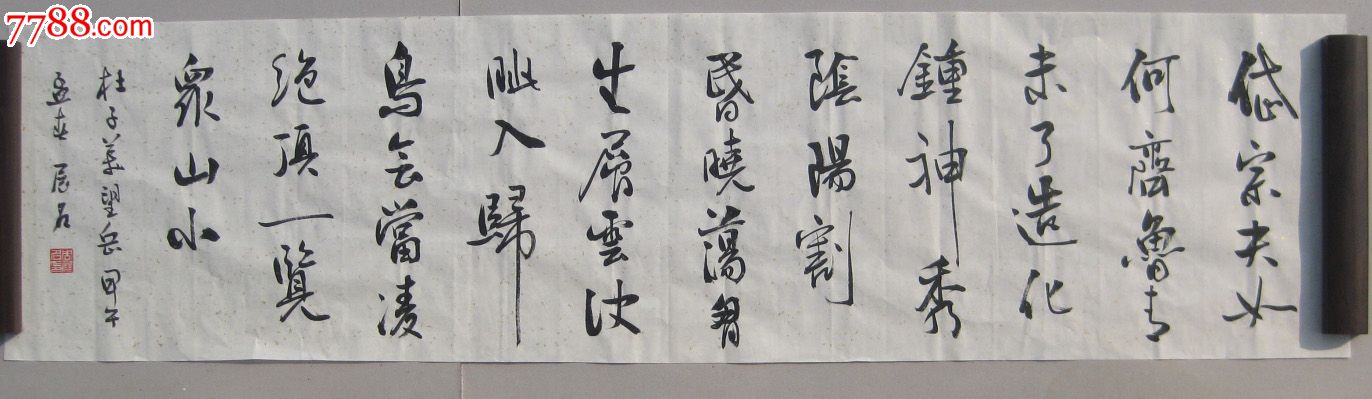 7788.com
岱宗夫如
何齊魯青
未了造化
鍾神秀
陰陽割
昬曉蕩胷
生層雲決
眦入歸
鳥会當凌
絶頂一覽
眾山小
杜子美望岳甲午
孟春